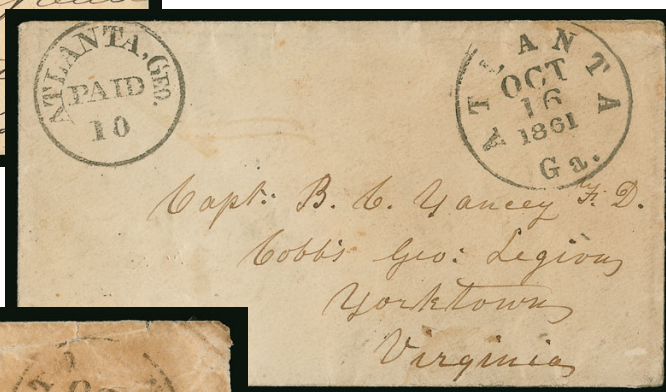 ATLANTA, GEO.
PAID
10
ATLANTA
OCT
16
1861
Ga.
Capt: B. C. Yancey F. D.
Cobb's Geo: Legion
Yorktown
Virginia